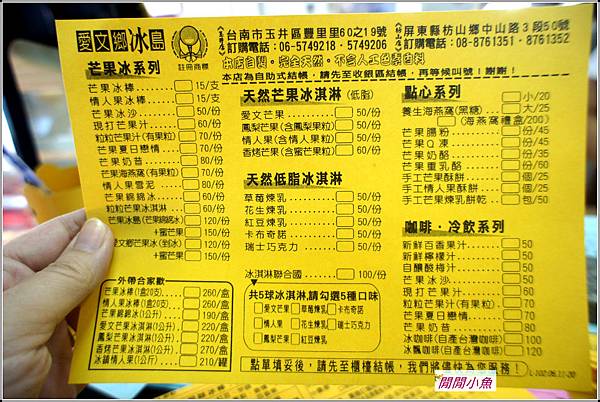 愛文鄉冰島
註冊商標
(玉井店) 台南市玉井區豐里里60之19號
訂購電話：06-5749218、5749206
(枋山店) 屏東縣枋山鄉中山路3段50號
訂購電話：08-8761351、8761352
本店自製、完全天然、不含人工色素香料
本店為自助式結帳，請先至收銀區結帳，再等候叫號！謝謝！
芒果冰系列
芒果冰棒 15/支
情人果冰棒 15/支
芒果冰沙 50/份
現打芒果汁 60/份
粒粒芒果汁(有果粒) 70/份
芒果夏日戀情 70/份
芒果奶昔 80/份
芒果海燕窩(有果粒) 70/份
情人果雪泥 50/份
芒果綿綿冰 60/份
粒粒芒果冰淇淋 60/份
芒果冰島(芒果綿綿冰) 120/份
+蜜芒果 150/份
愛文鄉芒果冰(剉冰) 120/份
+蜜芒果 150/份
外帶合家歡
芒果冰棒(1盒20支) 260/盒
情人果冰棒(1盒20支) 260/盒
芒果綿綿冰(1公升) 190/盒
愛文芒果冰淇淋(1公升) 220/盒
鳳梨芒果冰淇淋(1公升) 220/盒
香烤芒果冰淇淋(1公升) 270/盒
冰鎮情人果(1公斤) 210/罐
天然芒果冰淇淋(低脂)
愛文芒果 50/份
鳳梨芒果(含鳳梨果粒) 50/份
情人果(含情人果粒) 50/份
香烤芒果(含蜜芒果粒) 60/份
天然低脂冰淇淋
草莓煉乳 50/份
花生煉乳 50/份
紅豆煉乳 50/份
卡布奇諾 50/份
瑞士巧克力 50/份
冰淇淋聯合國 100/份
共5球冰淇淋,請勾選5種口味
愛文芒果 草莓煉乳 卡布奇諾
情人果 花生煉乳 瑞士巧克力
鳳梨芒果 紅豆煉乳
點心系列
小/20
養生海燕窩(黑糖) 大/25
(海燕窩禮盒/200)
芒果腸粉 份/45
芒果Q凍 份/45
芒果奶酪 份/35
芒果重乳酪 份/60
手工芒果酥餅 個/25
手工情人果酥餅 個/25
手工芒果煉乳餅乾 包/50
咖啡、冷飲系列
新鮮百香果汁 50
新鮮檸檬汁 50
自釀酸梅汁 50
芒果冰沙 50
現打芒果汁 60
粒粒芒果汁(有果粒) 70
芒果夏日戀情 70
芒果奶昔 80
冰咖啡(自產台灣咖啡) 100
冰飄咖啡(自產台灣咖啡) 120
點單填妥後，請先至櫃檯結帳，我們將儘快為您服務！
閒閒小魚